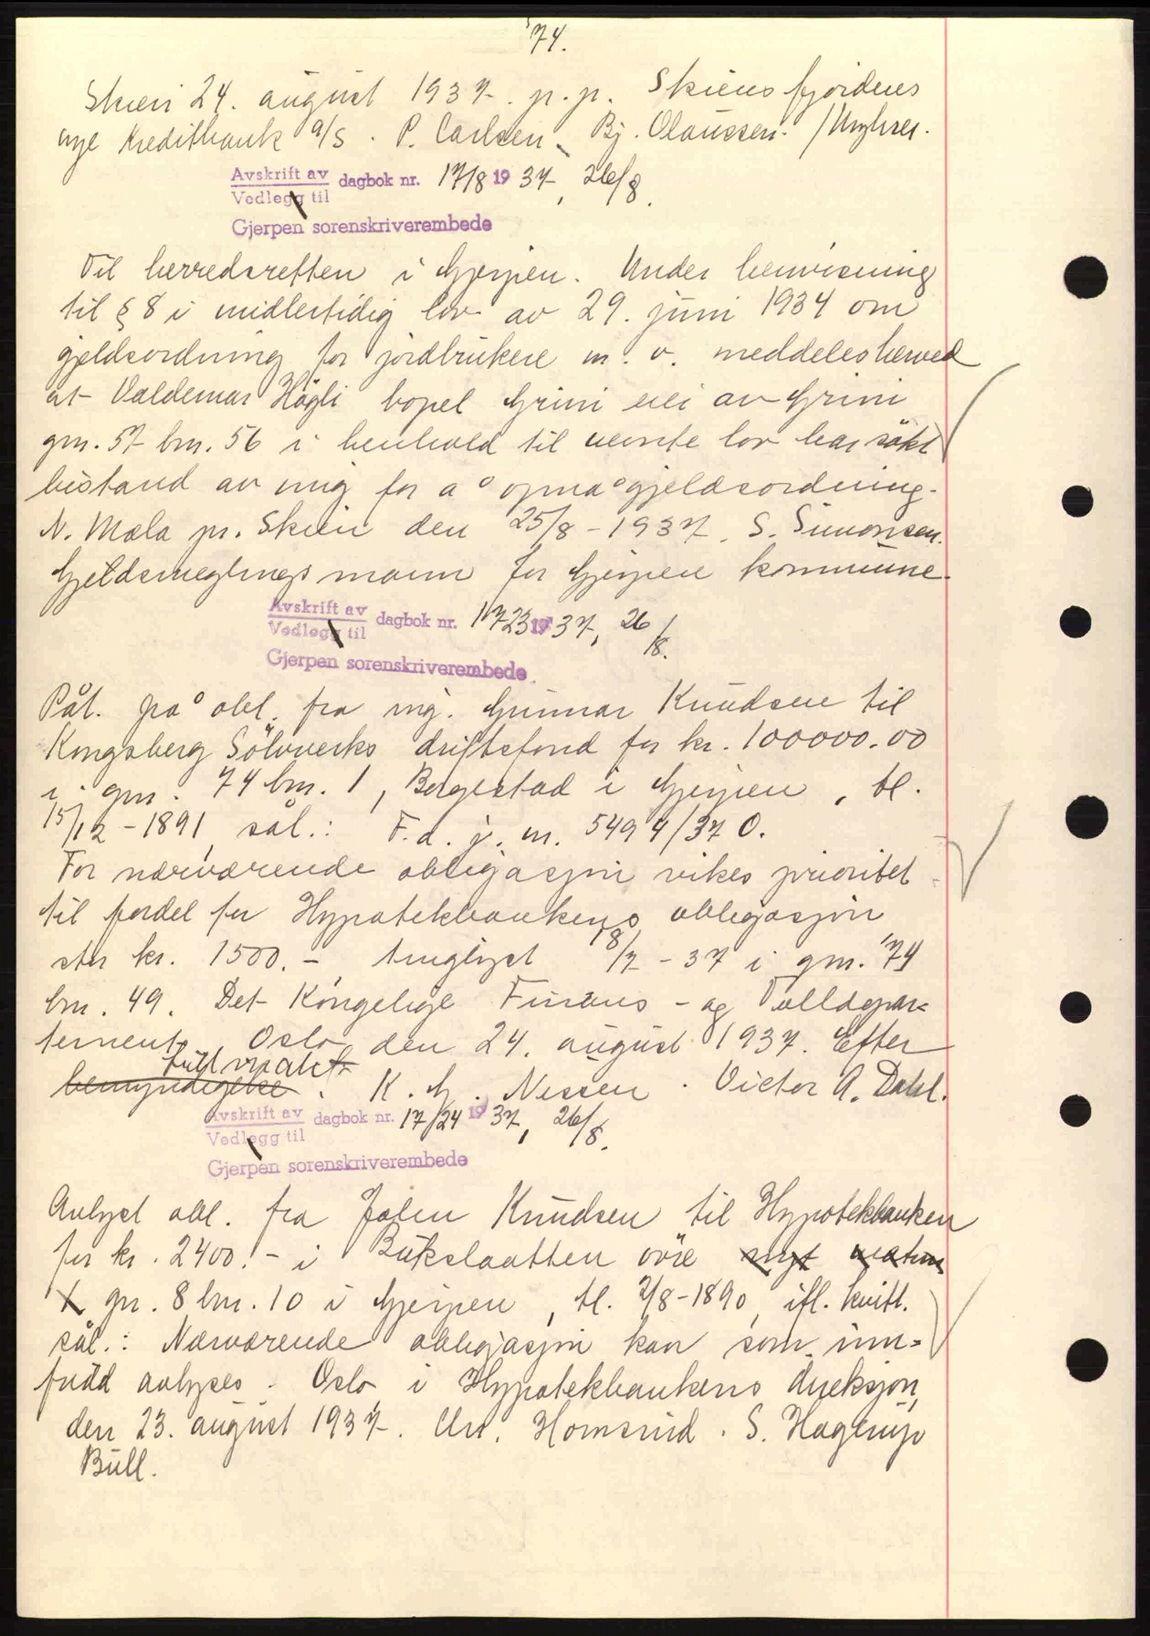 74.
Skien 24. august 1937. p.p. Skiensfjordens
nye Kreditbank a/s. P. Carlsen. Bj. Olaussen.
Avskrift av
Vedlegg til dagbok nr. 17/8 1937, 26/8.
Gjerpen sorenskriverembede
Til herredsretten i Gjerpen. Under henvisning
til § 8 i midlertidig lov av 29. juni 1934 om
gjeldsordning for jordbrukere m. v. meddeles herved
at Valdemar Högli bopel Grini eier av Grini
gnr. 57 bnr. 56 i henhold til nevnte lov har sökt
bistand av mig for å opnå gjeldsordning.
N. Mæla pr. Skien den 25/8-1937. S. Simonsen.
Gjeldsmeglingsmann for Gjerpen kommune.
Avskrift av
Vedlegg til dagbok nr. 1723 1937, 26/8.
Gjerpen sorenskriverembede.
Påt. på obl. fra ing. Gunnar Knudsen til
Kongsberg Sölvverks driftsfond for kr. 100000.00
i gnr. 74 bnr. 1, Borgestad i Gjerpen, tl.
15/12-1891, sål.: F.d. j. nr. 5494/37 O.
For nærværende obligasjon vikes prioritet
til fordel for Hypotekbankens obligasjon
stor kr. 1500.- tinglyst 18/7-37 i gnr. 74
bnr. 49. Det Kongelige Finans- og Tolldepar-
tement, Oslo den 24. august 1937. Efter
fullmakt
bemyndigelse. K. G. Nissen. Victor A. Dahl.
Avskrift av
Vedlegg til dagbok nr. 17/24 1937, 26/8.
Gjerpen sorenskriverembede
Avlyst obl. fra Johen Knudsen til Hypotekbanken
for kr. 2400.- i Bukslaatten övre
gnr. 8 bnr. 10 i Gjerpen, tl. 2/8-1890, ifl. kvitt.
sål.: Nærværende obligasjon kan som inn-
fridd avlyses. Oslo i Hypotekbankens direksjon,
den 23. august 1937. Chr. Hornsrud. S. Hagerup
Bull.